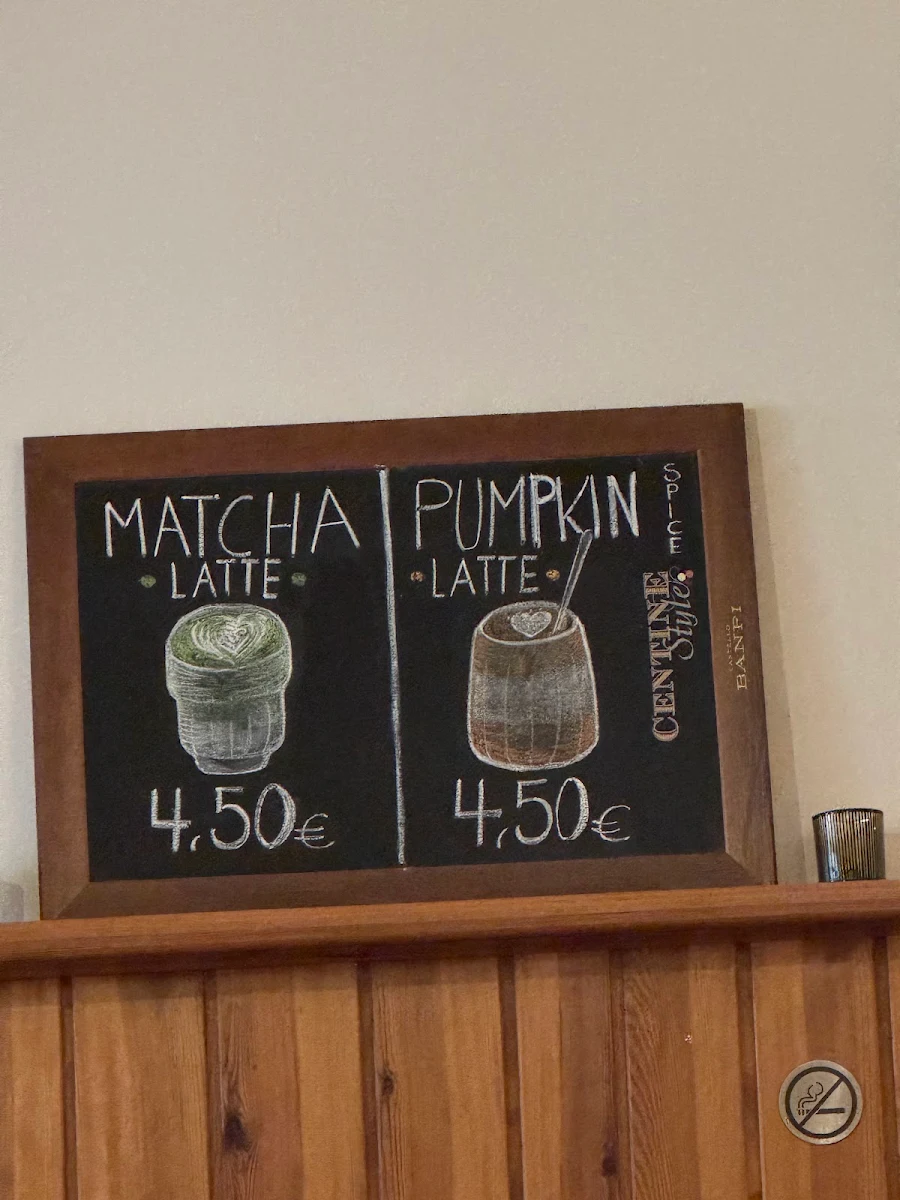 MATCHA
LATTE
4,50€
PUMPKIN
SPICE
LATTE
4,50€
CENTINE
Style
CASTELLO
BANFI